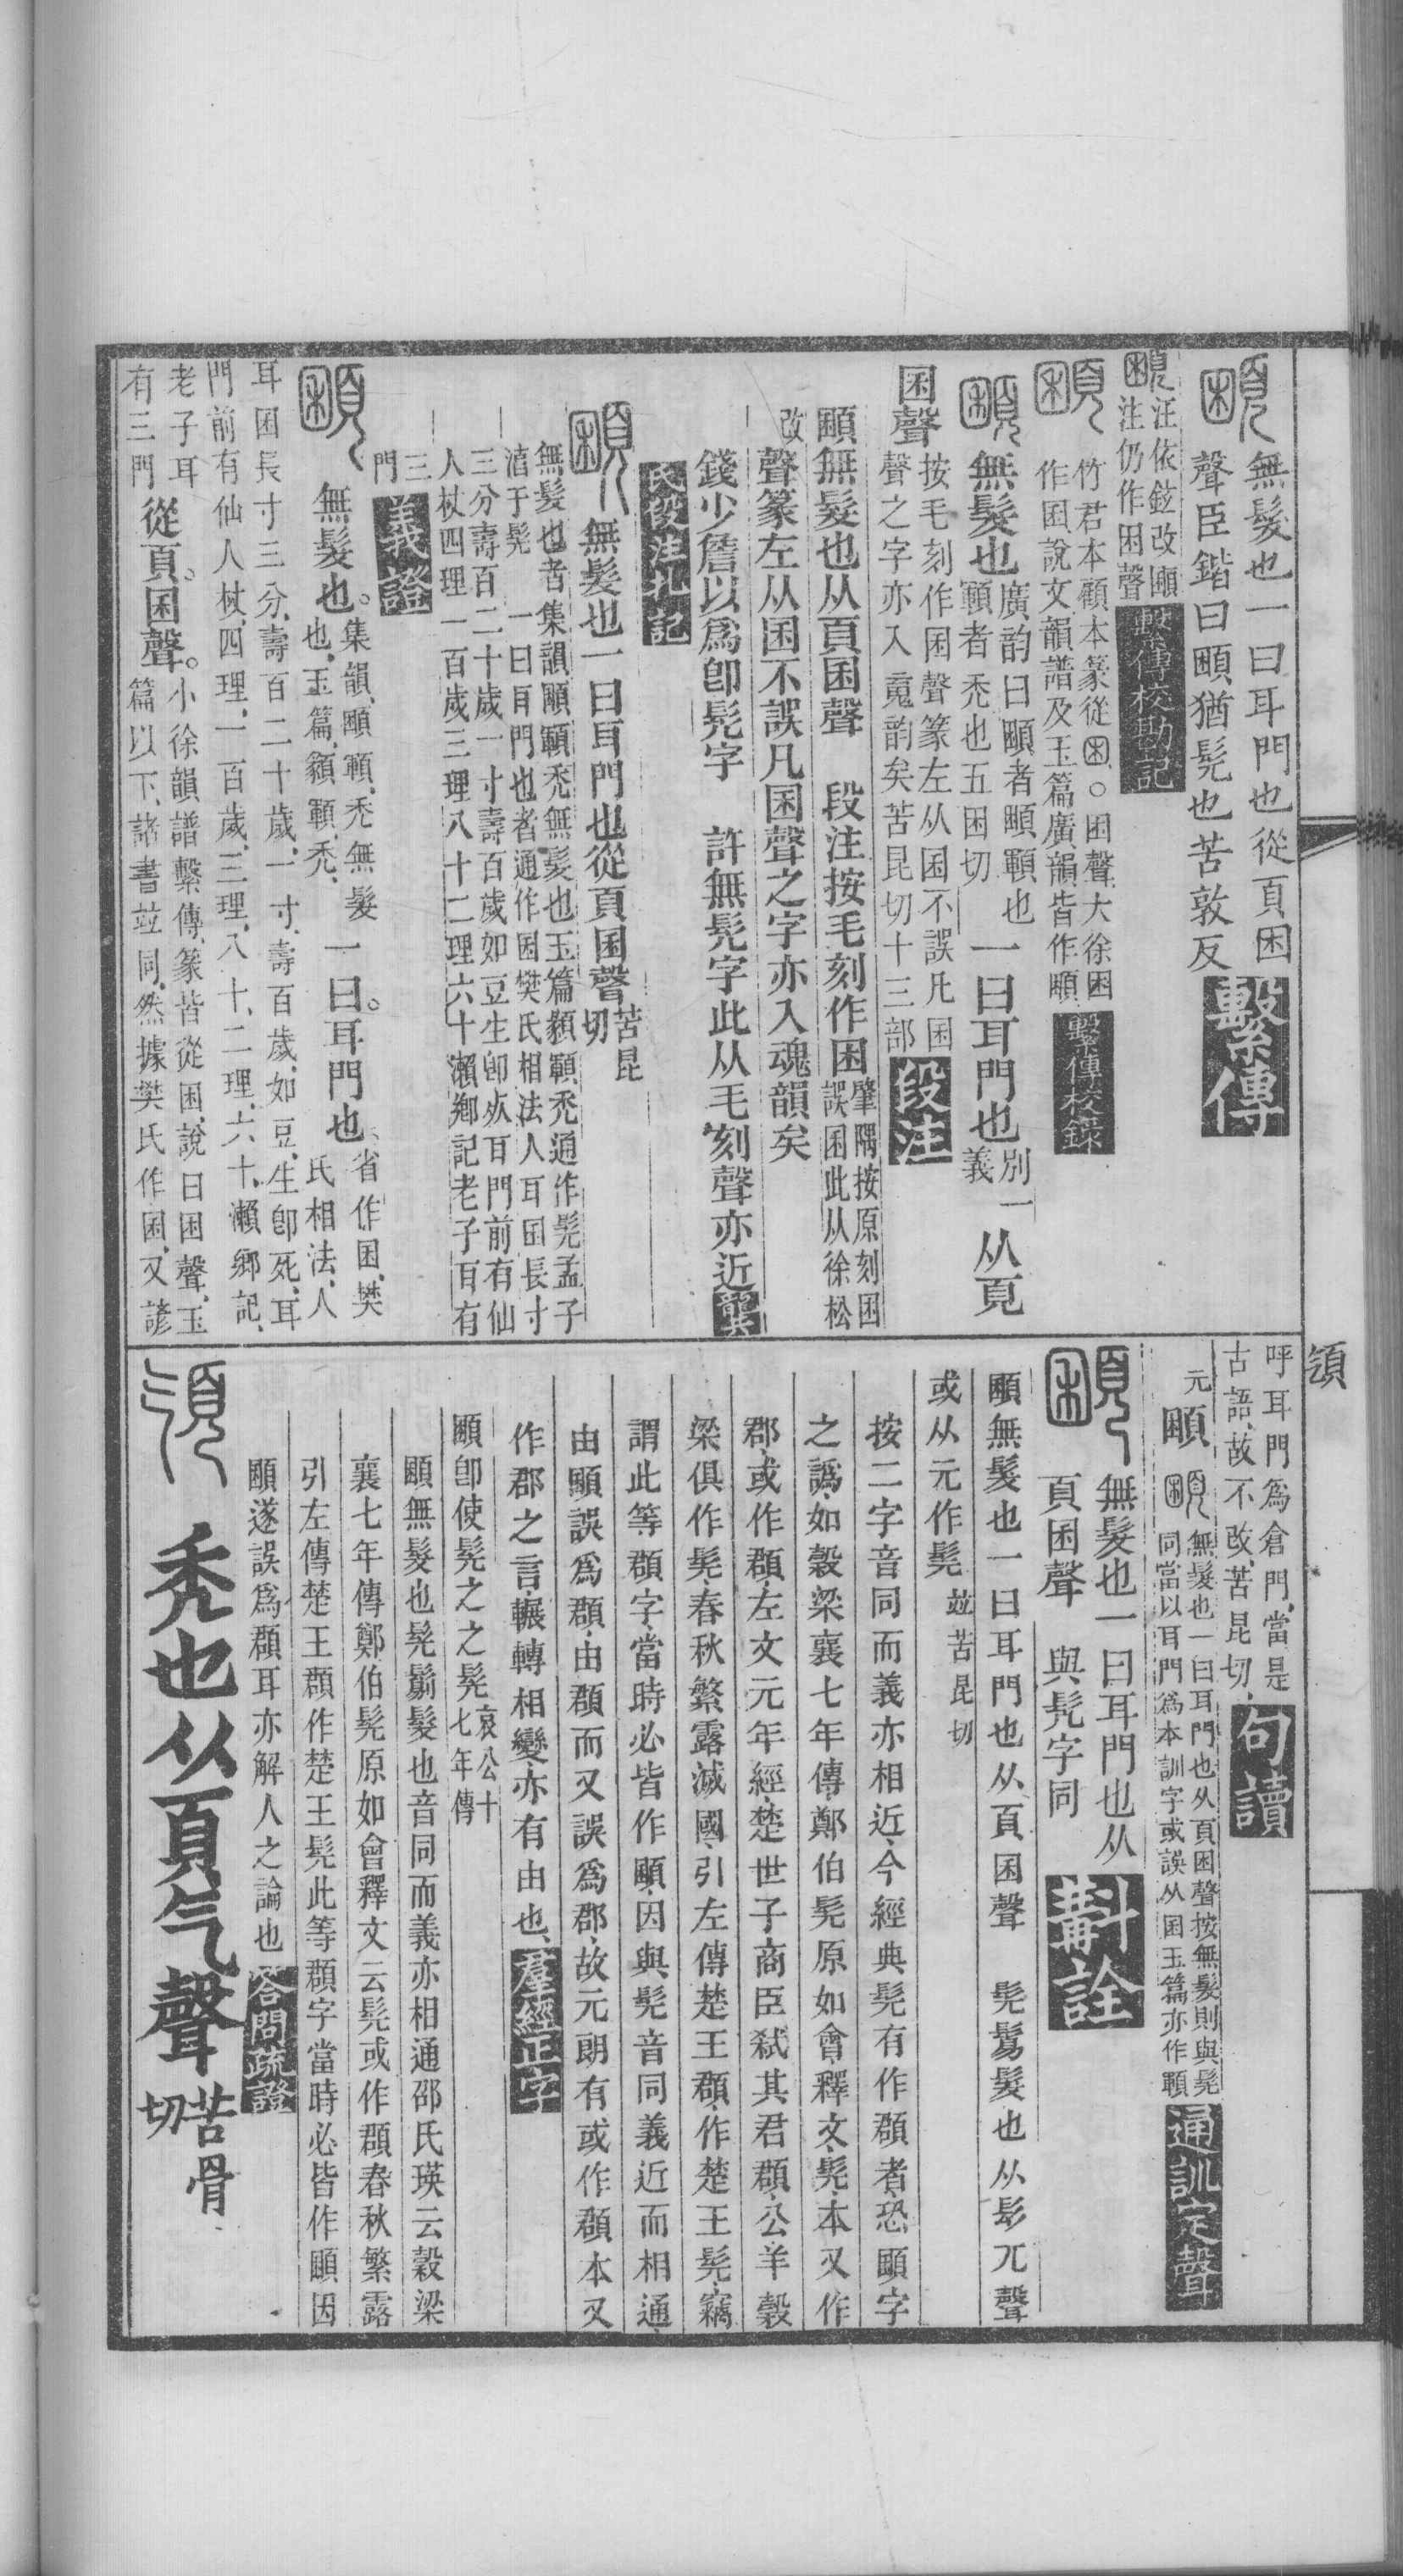 無髮也一曰耳門也從頁困
聲臣鍇曰顐猶髡也苦敦反
繫傳
汪依鉉改顐
注仍作困聲
繫傳校勘記
竹君本顧本篆從困○困聲大徐困
作囷說文韻譜及玉篇廣韻皆作顐
繫傳校錄
無髮也
廣韵曰顐者顐顊也
顊者禿也五困切
一曰耳門也
別一
義
从頁
困聲
按毛刻作囷聲篆左从困不誤凡困
聲之字亦入䰟韵矣苦昆切十三部
段注
顐無髮也从頁困聲 段注按毛刻作囷
肇隅按原刻困
誤囷此从徐松
改
聲篆左从困不誤凡困聲之字亦入魂韻矣
錢少詹以爲卽髡字 許無髡字此从毛刻聲亦近
龔氏段注札記
無髮也一曰耳門也從頁囷聲
苦昆
切
無髮也者集韻顐顊禿無髮也玉篇纇顊禿通作髡孟子
湻于髡 一曰耳門也者通作囷樊氏相法人耳囷長寸
三分壽百二十歲一寸壽百歲如豆生卽死耳門前有仙
人杖四理一百歲三理八十二理六十瀨鄉記老子耳有
三
門
義證
無髮也。
集韻、顐顊、禿無髮
也、玉篇、纇顊、禿、
一曰。耳門也、
省作困、樊
氏相法、人
耳困長寸三分、壽百二十歲、一寸、壽百歲、如豆、生卽死、耳
門前有仙人杖、四理、一百歲、三理、八十、二理、六十、瀨鄉記、
老子耳
有三門
從頁。困聲。
小徐韻譜繫傳、篆皆從困、說曰困聲、玉
篇以下、諸書竝同、然據樊氏作困、又諺
呼耳門爲倉門、當是
古語、故不改、苦昆切、
句讀
頟
元
顐
無髮也一曰耳門也从頁困聲按無髮則與髡
同當以耳門爲本訓字或誤从囷玉篇亦作顊
通訓定聲
無髮也一曰耳門也从
頁困聲 與髡字同
斠詮
顐無髮也一曰耳門也从頁困聲 髡鬄髮也从髟兀聲
或从元作髨 竝苦昆切
按二字音同而義亦相近、今經典髡有作頵者、恐顐字
之譌、如穀梁襄七年傳、鄭伯髡原如會、釋文、髡、本又作
郡、或作頵、左文元年經、楚世子商臣弒其君頵、公羊穀
梁俱作髡、春秋繁露滅國、引左傳楚王頵、作楚王髡、竊
謂此等頵字、當時必皆作顐、因與髡音同義近而相通、
由顐誤爲頵、由頵而又誤爲郡、故元朗有或作頵本又
作郡之言、輾轉相變、亦有由也、
羣經正字
顐卽使髡之之髡
哀公十
七年傳
顐無髮也髡鬀髮也音同而義亦相通邵氏瑛云穀梁
襄七年傳鄭伯髡原如會釋文云髡或作頵春秋繁露
引左傳楚王頵作楚王髡此等頵字當時必皆作顐因
顐遂誤爲頵耳亦解人之論也
答問疏證
禿也从頁气聲
苦骨
切